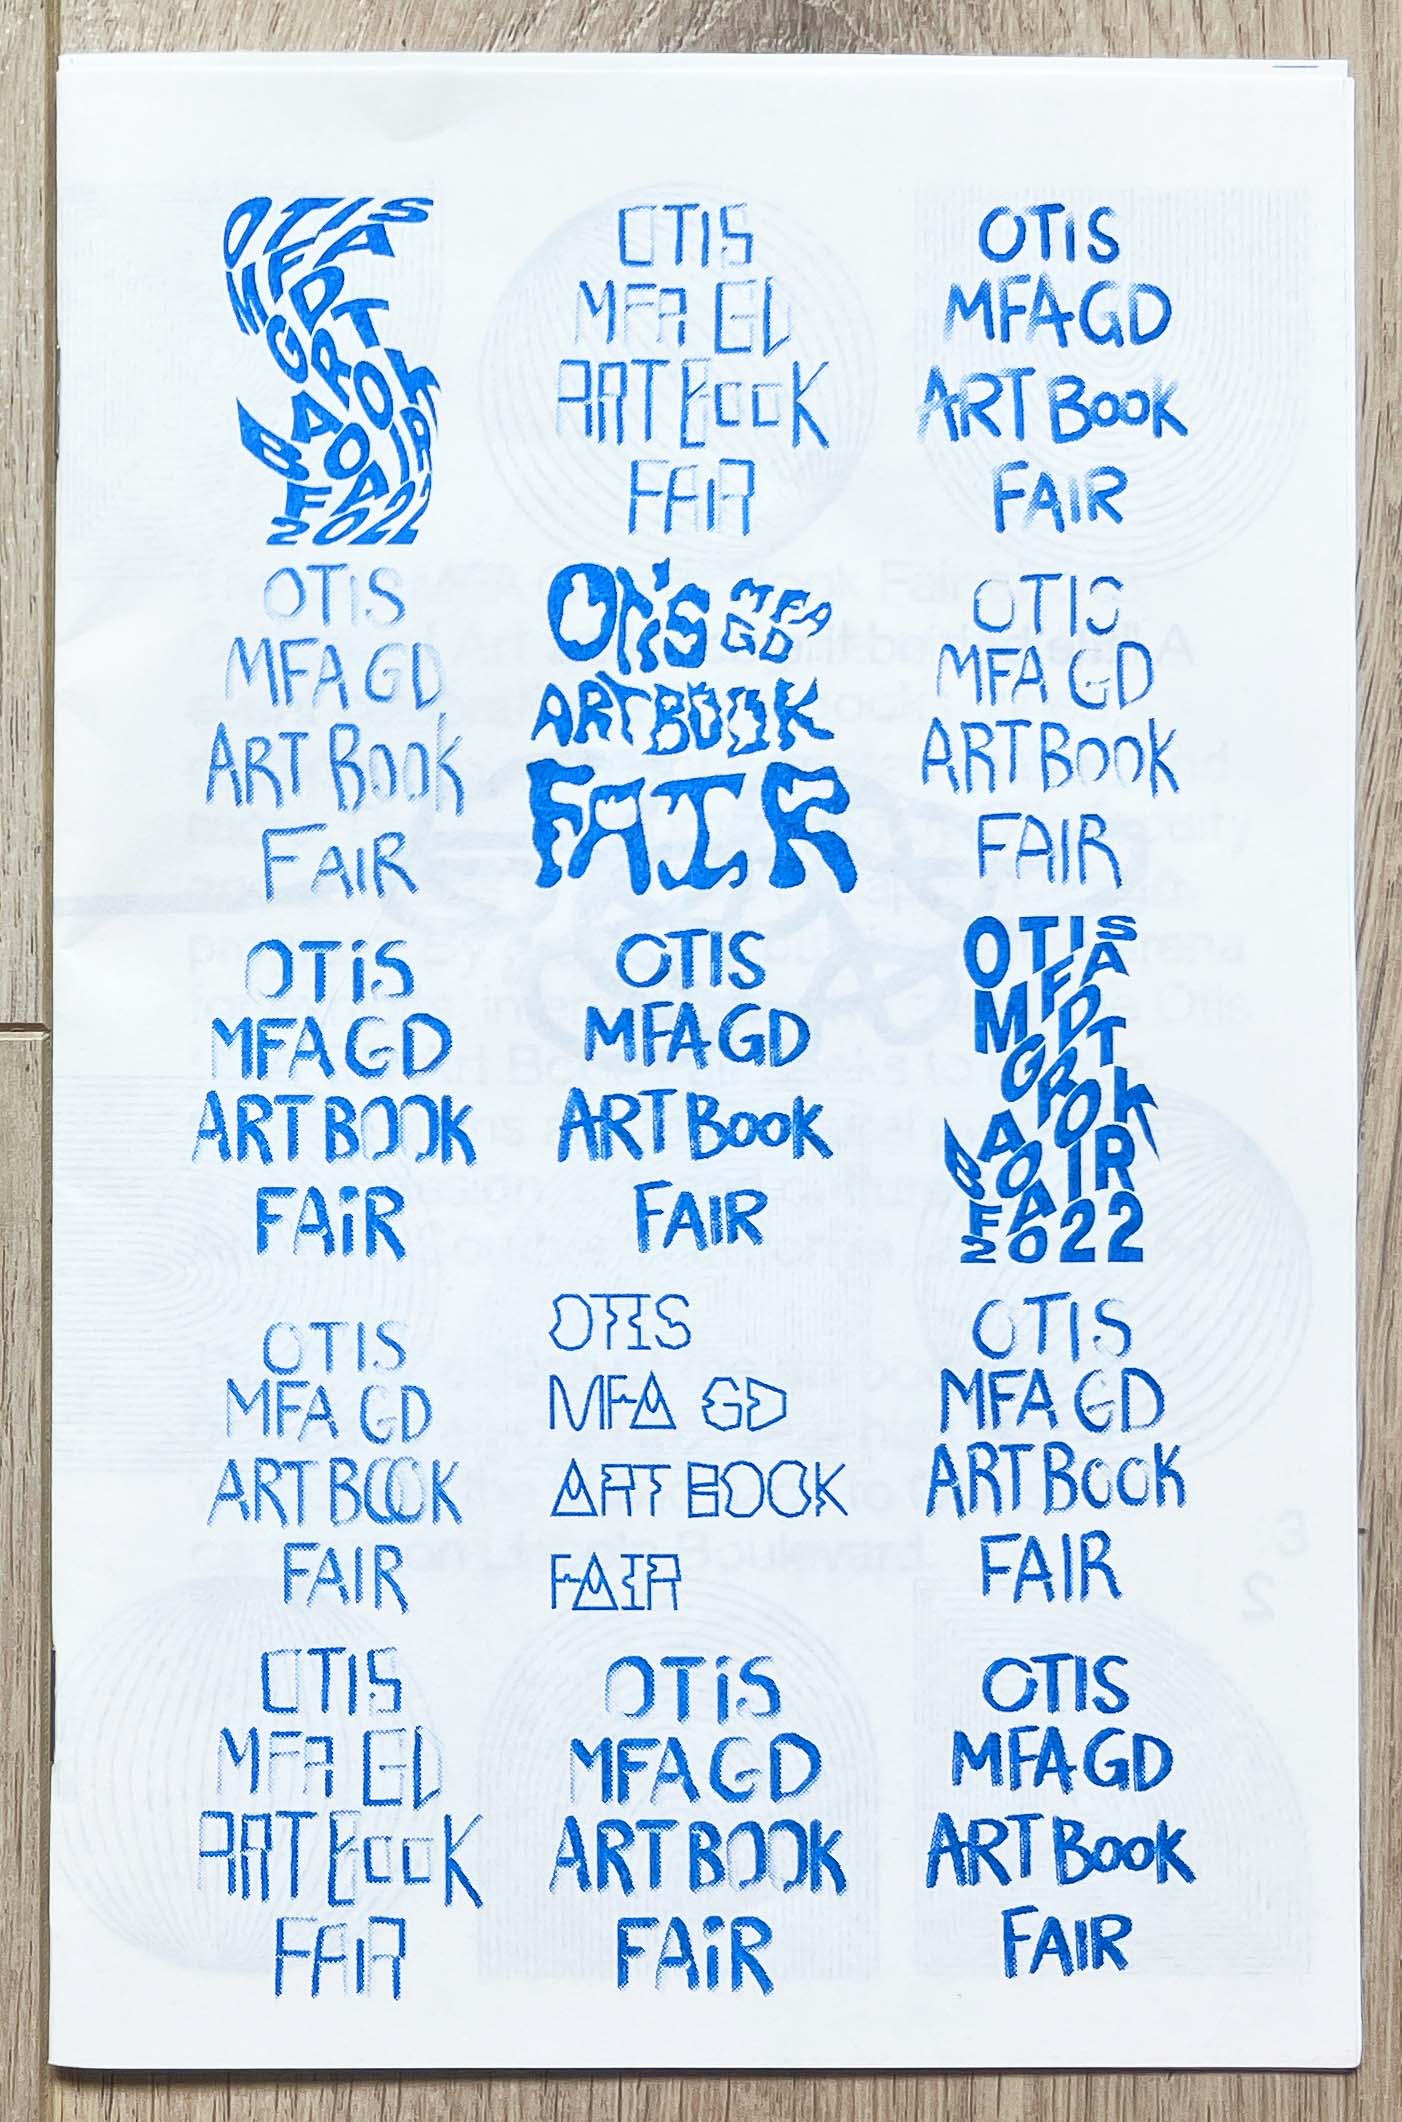 OTIS
MFA
GD
ART
BOOK
FAIR
2022
OTIS
MFA GD
ART BOOK
FAIR
OTIS
MFA GD
ART BOOK
FAIR
OTIS
MFA GD
ART BOOK
FAIR
OTIS MFA
GD
ART BOOK
FAIR
OTIS
MFA GD
ART BOOK
FAIR
OTiS
MFA GD
ART BOOK
FAiR
OTIS
MFA GD
ART BOOK
FAIR
OTIS
MFA
GD
ART
BOOK
FAIR
2022
OTIS
MFA GD
ART BOOK
FAIR
OTIS
MFA GD
ART BOOK
FAIR
OTIS
MFA GD
ART BOOK
FAIR
OTIS
MFA GD
ART BOOK
FAIR
OTiS
MFA GD
ART BOOK
FAiR
OTIS
MFA GD
ART BOOK
FAIR